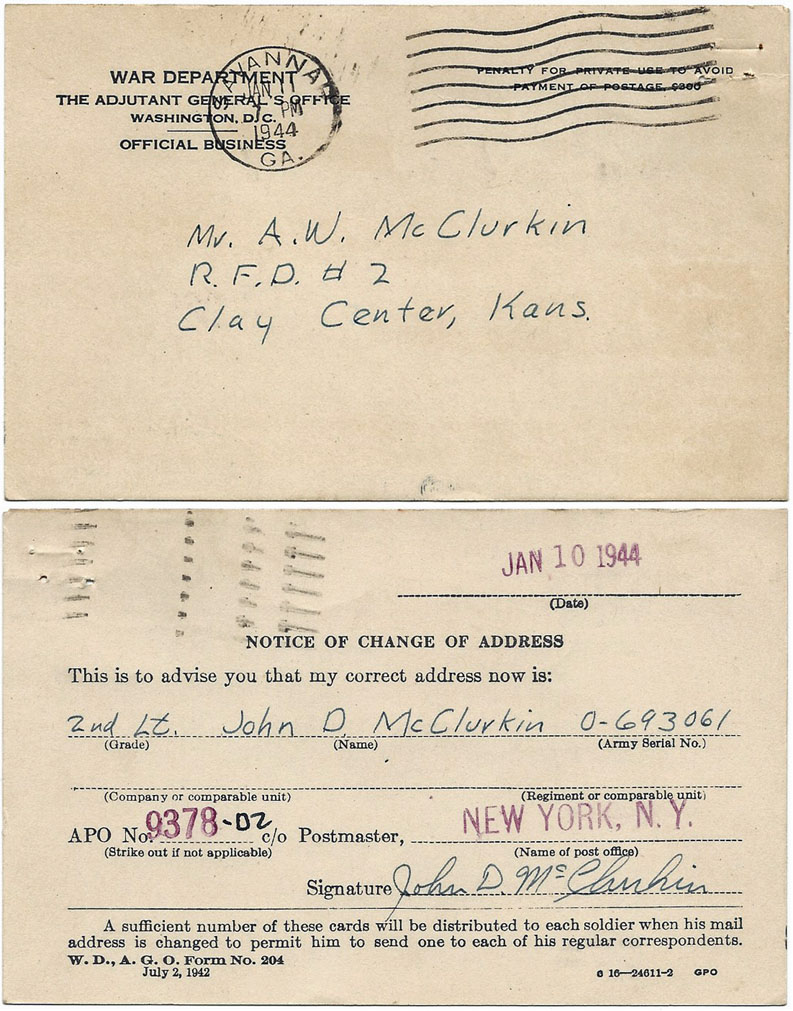 WAR DEPARTMENT
THE ADJUTANT GENERAL'S OFFICE
WASHINGTON, D.C.
OFFICIAL BUSINESS
SAVANNAH
JAN 11
7 PM
1944
GA.
PENALTY FOR PRIVATE USE TO AVOID
PAYMENT OF POSTAGE, $300
Mr. A.W. McClurkin
R.F.D. # 2
Clay Center, Kans.
JAN 10 1944
(Date)
NOTICE OF CHANGE OF ADDRESS
This is to advise you that my correct address now is:
2nd Lt. John D. McClurkin O-693061
(Grade) (Name) (Army Serial No.)
(Company or comparable unit) (Regiment or comparable unit)
APO No. 9378-DZ c/o Postmaster, NEW YORK, N.Y.
(Strike out if not applicable) (Name of post office)
Signature John D. McClurkin
A sufficient number of these cards will be distributed to each soldier when his mail
address is changed to permit him to send one to each of his regular correspondents.
W. D., A. G. O. Form No. 204
July 2, 1942
6 16—24611-2 GPO